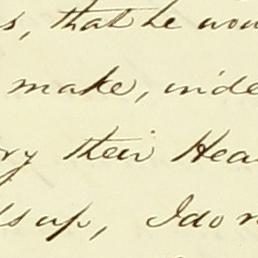 s, that he wou
make, inde
ry their Hea
ds up, I do n